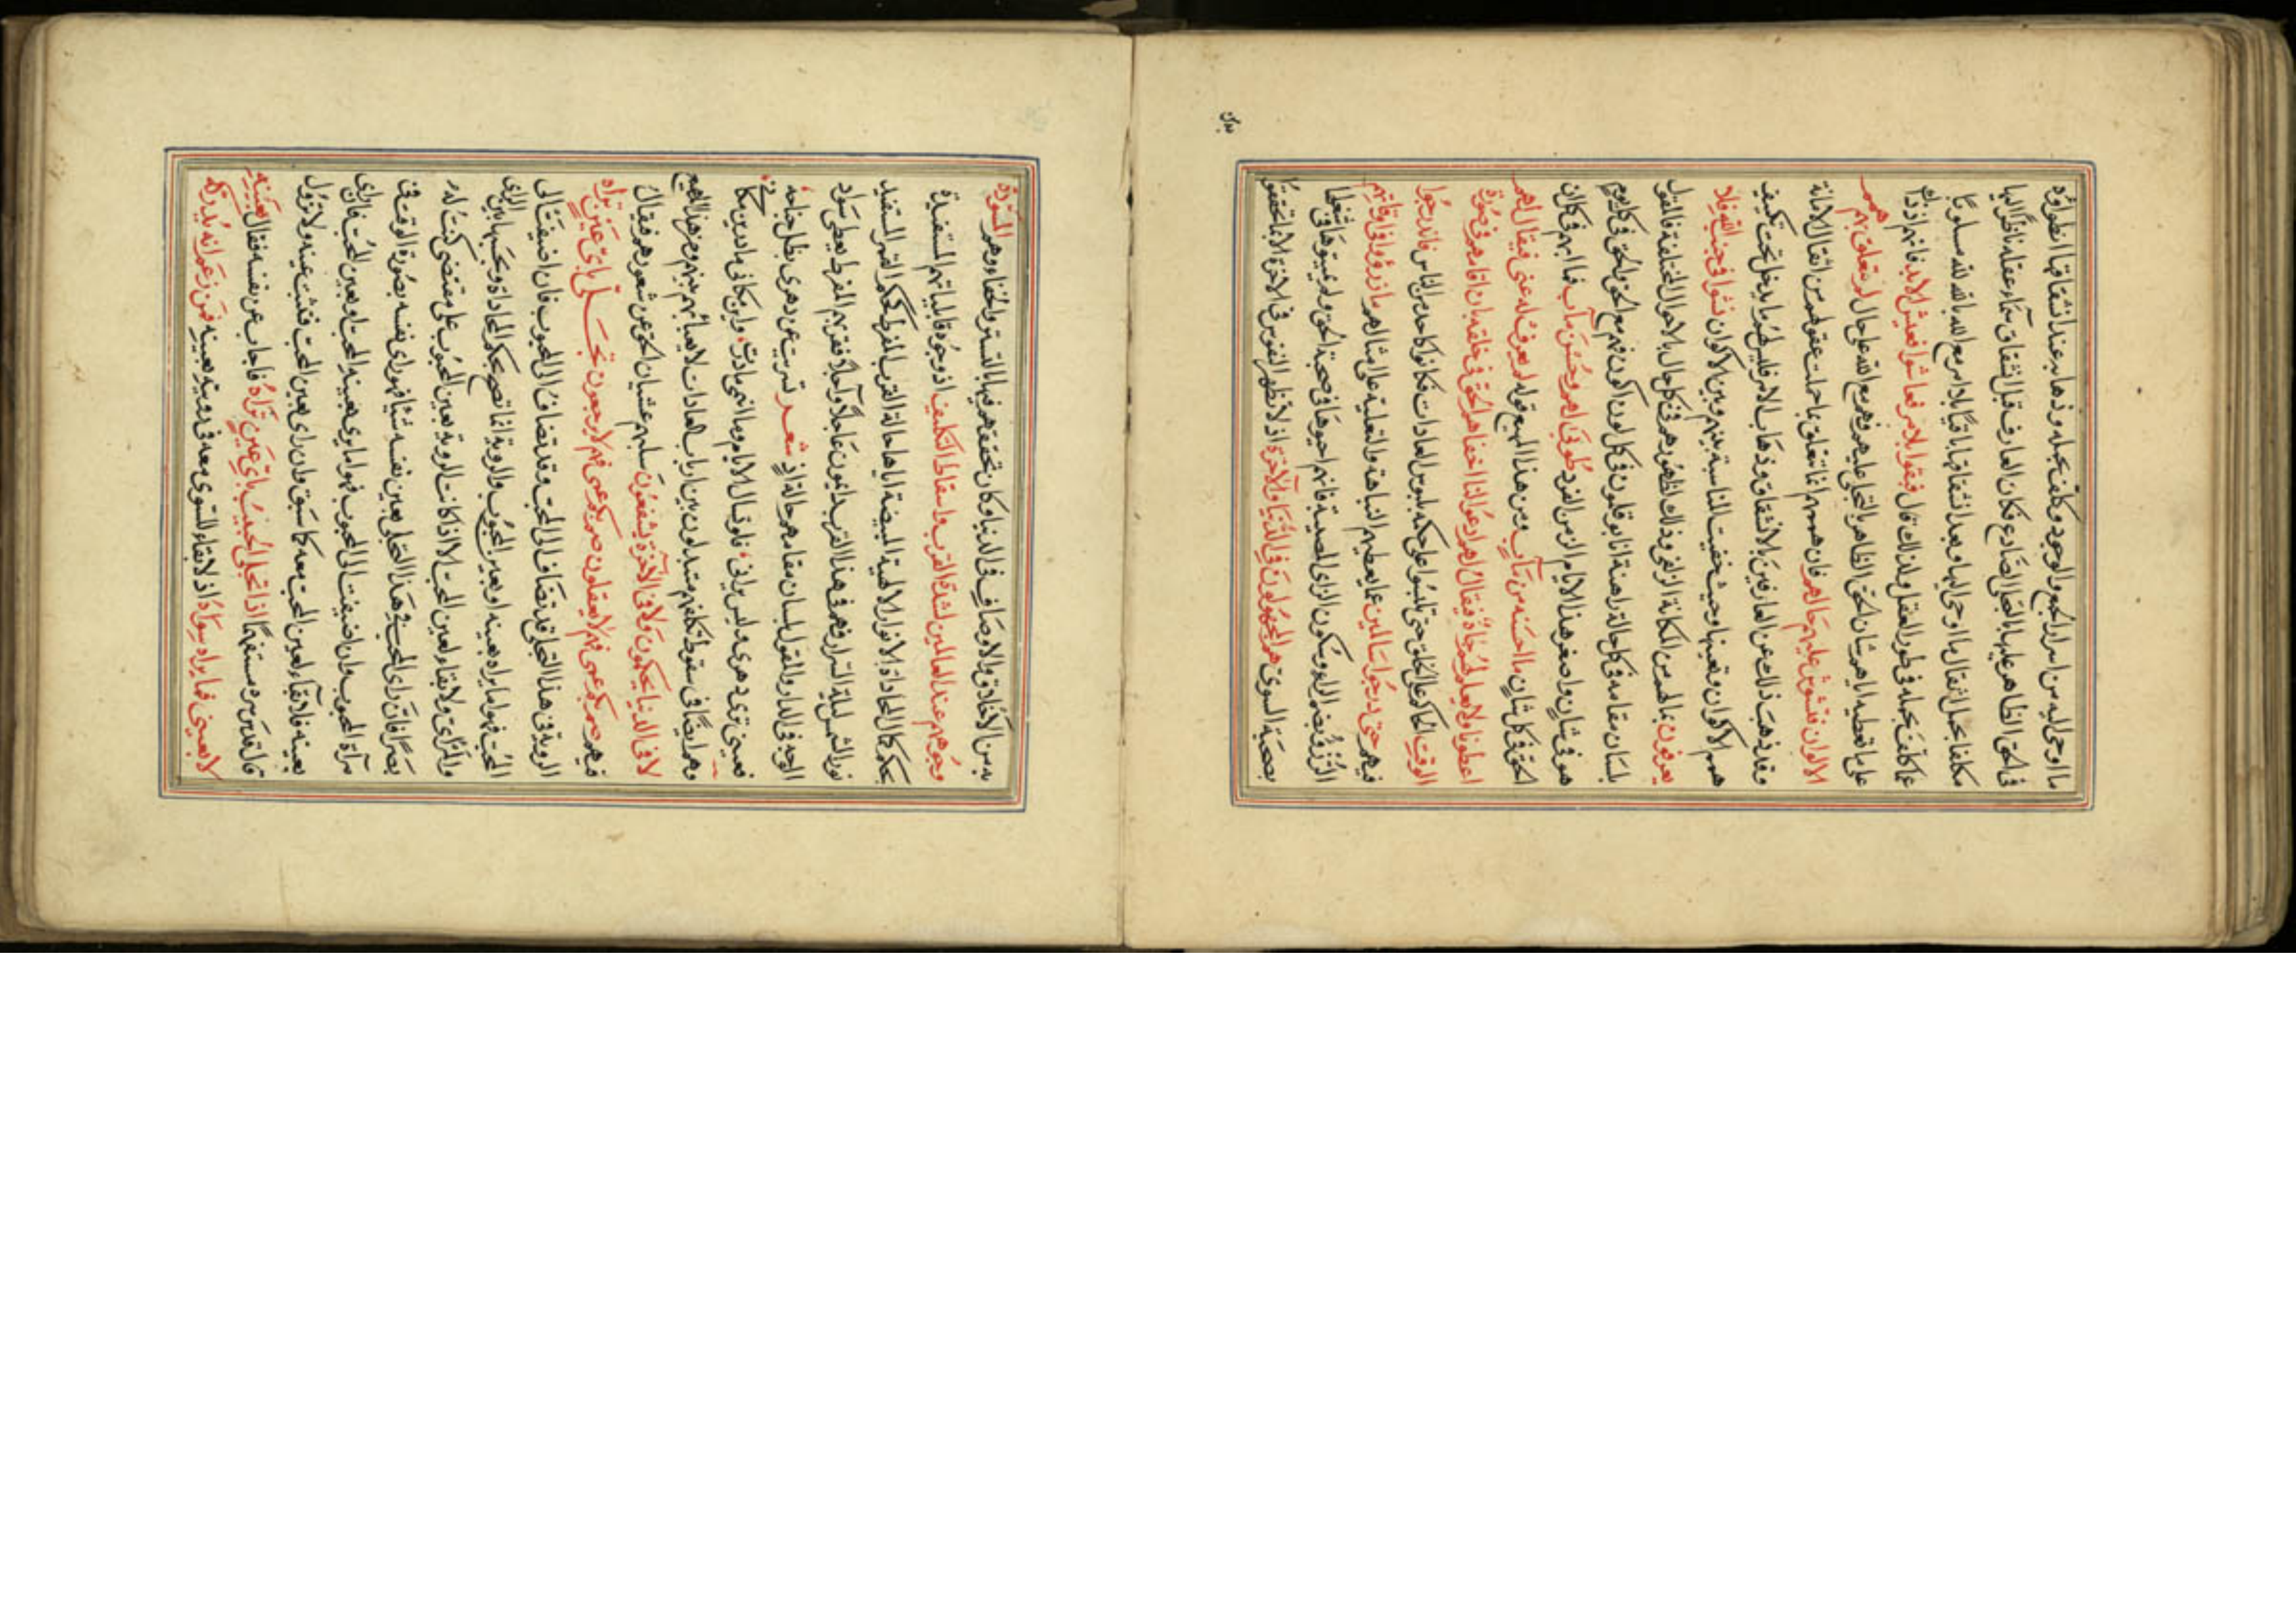 ما اوحى اليه من اسرار الجمع والوجود وكلف بحمله وذهابه عند انشقاقها انطواؤه
في الحق الظاهر عليها بالتجلي الصادع فكان العارف قبل انشقاق سماء عقله ناظرا اليها
مكلفا بحمل اثقال ما اوحى اليها وبعد انشقاقها باقيا بلا امر مع الله بالله لله مسلوبا
عما كلف بحمله في طور العقل ولذلك قال فبقوا بلا امر فعاشوا فعيش الابد فانهم اذ ذاك
على ما تعطيه اياهم شان الحق الظاهر بالتجلي عليهم فهم مع الله على حال لم تتعلق بهم همم
الاكوان فتشوش عليهم حالهم فان هممهم انما تتعلق بما حملت عقولهم من اثقال الامانة
وقد ذهب ذلك عن العارفين بالانشقاق وذهاب الامر فليس لهم ما يدخل تحت تكييف
همم الاكوان وتعينها وحيث خفيت المناسبة بينهم وبين الاكوان نسوا في جنب الله فلا
يعرفون بما لهم من المكانة الزلفى وذلك لظهورهم في كل حال بالاحوال المختلفة فالمقول
بلسان مقامه في كل حالة راهنة انا بوقلمون في كل لون اكون فهم مع الحق والحق في كل يوم
هو في شان واصغر هذا الايام الزمن الفرد طوبى لهم وحسن مآب فما ابهم في كل آن
الحق في كل شان ما احسنه من مآب ومن هذا المهيع قوله لم يعرف له غنى فيقال لهم
اعطونا ولا يعلم لهم جاه فيقال لهم ادعوا لنا اخفاهم الحق في خلقه بان اقامهم في صورة
الوقت الحاكم على الخلق حتى تلبسوا على حكمه بملبوس العادات فكانوا كاحد من الناس فاندرجوا
فيهم حتى درجوا سالمين عما يعطيهم النباهة والتعلية على امثالهم ما رزؤا في اوقاتهم
الرزؤ بضم الراء وسكون الزاي المصيبة فانهم احيوها في صحبة الحق ولم يميتوها في شغل ما
بصحبة السوى هم المجهولون في الدنيا والآخرة اذ لا تظهر النفوس في الآخرة الا بما تحققوا
به من
به من الاخلاق والاوصاف في الدنيا وكان تحققهم فيها بالتستر والخفاء وهم المسودة
وجوههم عند العالمين لشدة القرب واسقاط التكليف اذ وجوه قابلياتهم المستفيدة
بحكم كمال المحاذاة الانوار الالهية المبيضة اياها حالة القرب المفرط كحكم القمر المستفيد
نور الشمس ليلة السرار فهم في هذا القرب دائمون عاجلا وآجلا ففقرهم المفرط يعطي سواد
الوجه في الدار والمقول بلسان مقامهم حالة اذ شعر تسترت عن دهري بظل جناحه
فعيني ترى دهري وليس يراني ، فلو تسال الايام عني ما اسمي مادرت ، واين مكاني ما درين مكاني
وهم ايضا في سقوط تكلفهم متبدلون بين ارباب العادات لا يعبأ بهم بينهم ومن هذا المهيع
لا في الدنيا يحكمون ولا في الآخرة يشفعون سلبهم غشيان الحق عن شعورهم فقال
فيهم صم بكم عمي فهم لا يعقلون صم بكم عمي فهم لا يرجعون تجلي باي عين تراه
الرؤية في هذا التجلي قد تضاف الى المحب وقد تضاف الى المحبوب فان اضيفت الى
المحب فهو اما يراه بعينه او بعين المحبوب والرؤية انما تصح بحكم المحاذاة وبحسبها بين الرائي
والمرئي ولا بقاء لعين المحب الا اذا كانت الرؤية بعين المحبوب على مقتضى كنت له
بصرا فان رأى المحب في هذا التجلي بعين نفسه شيئا فهو رأى نفسه بصورة الوقت في
مرآة المحبوب وان اضيفت الى المحبوب فهو اما يرى بعينه المحب او بعين المحب فان رأى
بعينه فلا بقاء لعين المحب معه كما سبق وان رأى بعين المحب فتثبت عينه ولا تزول
قال قدس سره مستفهما اذا تجلى الحبيب باي عين تراه فاجاب عن نفسه فقال بعينه
لا بعيني فما يراه سواه اذ لا بقاء للسوى معه في رؤيته بعينه فمن زعم انه يدركه